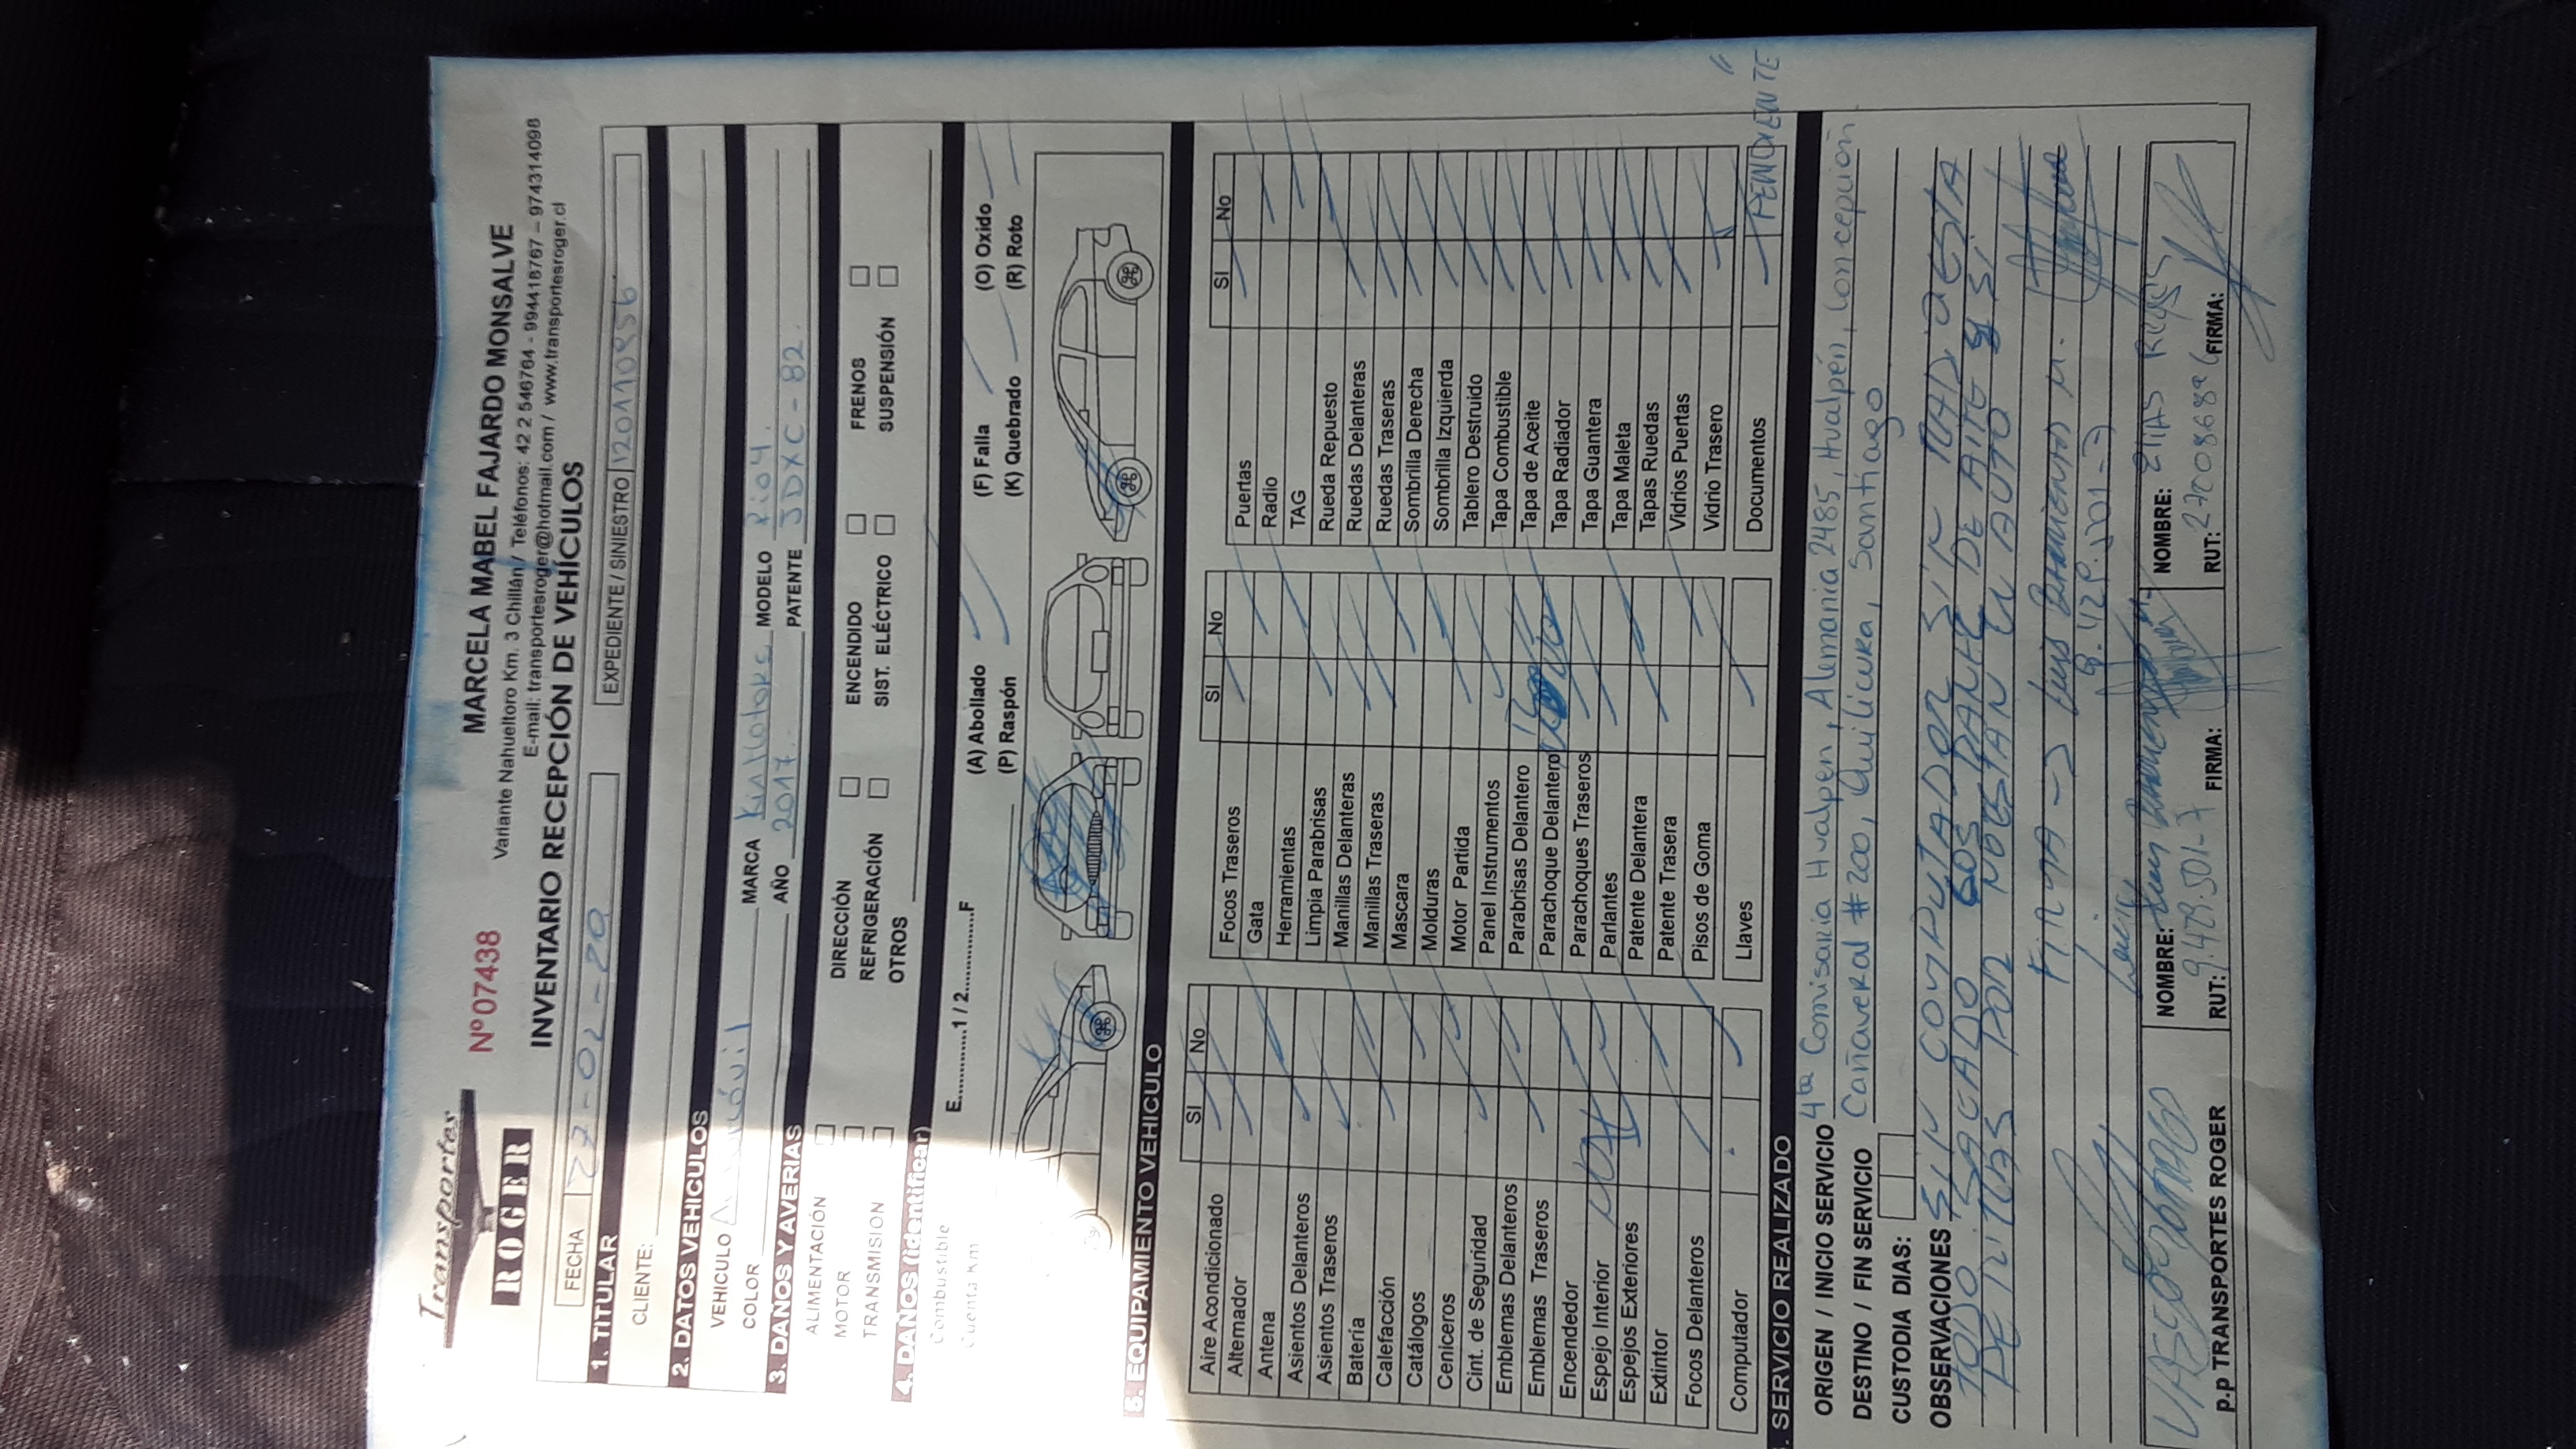 Transportes
ROGER
Nº 07438
MARCELA MABEL FAJARDO MONSALVE
Variante Nahueltoro Km. 3 Chillán / Teléfonos: 42 2 546764 - 994418767 – 974314098
E-mail: transportesroger@hotmail.com / www.transportesroger.cl
INVENTARIO RECEPCIÓN DE VEHÍCULOS
FECHA 27-02-20 EXPEDIENTE / SINIESTRO
1. TITULAR
CLIENTE:
2. DATOS VEHICULOS
VEHICULO MARCA MODELO Rio 4.
COLOR AÑO 2017. PATENTE JDXC-82.
3. DAÑOS Y AVERIAS
ALIMENTACIÓN DIRECCIÓN ENCENDIDO FRENOS
MOTOR REFRIGERACIÓN SIST. ELÉCTRICO SUSPENSIÓN
TRANSMISION OTROS
4. DAÑOS (Identificar)
Combustible E............1 / 2............F (A) Abollado (F) Falla (O) Oxido
Cuenta Km (P) Raspón (K) Quebrado (R) Roto
5. EQUIPAMIENTO VEHICULO
SI No SI No SI No
Aire Acondicionado Focos Traseros Puertas
Alternador Gata Radio
Antena Herramientas TAG
Asientos Delanteros Limpia Parabrisas Rueda Repuesto
Asientos Traseros Manillas Delanteras Ruedas Delanteras
Batería Manillas Traseras Ruedas Traseras
Calefacción Mascara Sombrilla Derecha
Catálogos Molduras Sombrilla Izquierda
Ceniceros Motor Partida Tablero Destruido
Cint. de Seguridad Panel Instrumentos Tapa Combustible
Emblemas Delanteros Parabrisas Delantero Tapa de Aceite
Emblemas Traseros Parachoque Delantero Tapa Radiador
Encendedor Parachoques Traseros Tapa Guantera
Espejo Interior Parlantes Tapa Maleta
Espejos Exteriores Patente Delantera Tapas Ruedas
Extintor Patente Trasera Vidrios Puertas
Focos Delanteros Pisos de Goma Vidrio Trasero
Computador Llaves Documentos PENDIENTE
. SERVICIO REALIZADO
ORIGEN / INICIO SERVICIO 4ta Comisaria Hualpen, Alemania 2485, Hualpén, Concepción
DESTINO / FIN SERVICIO Cañaveral #200, Quilicura, Santiago
CUSTODIA DIAS:
OBSERVACIONES SIN COMPUTADOR SIN ESTA
TODO SACADO LOS DE AITE y SI
POR NO ESTAN EN AUTO
FIRMA -> Luis
NOMBRE: NOMBRE: Elias Reyes
p.p TRANSPORTES ROGER RUT: 9.428.501-7 FIRMA: RUT: FIRMA: